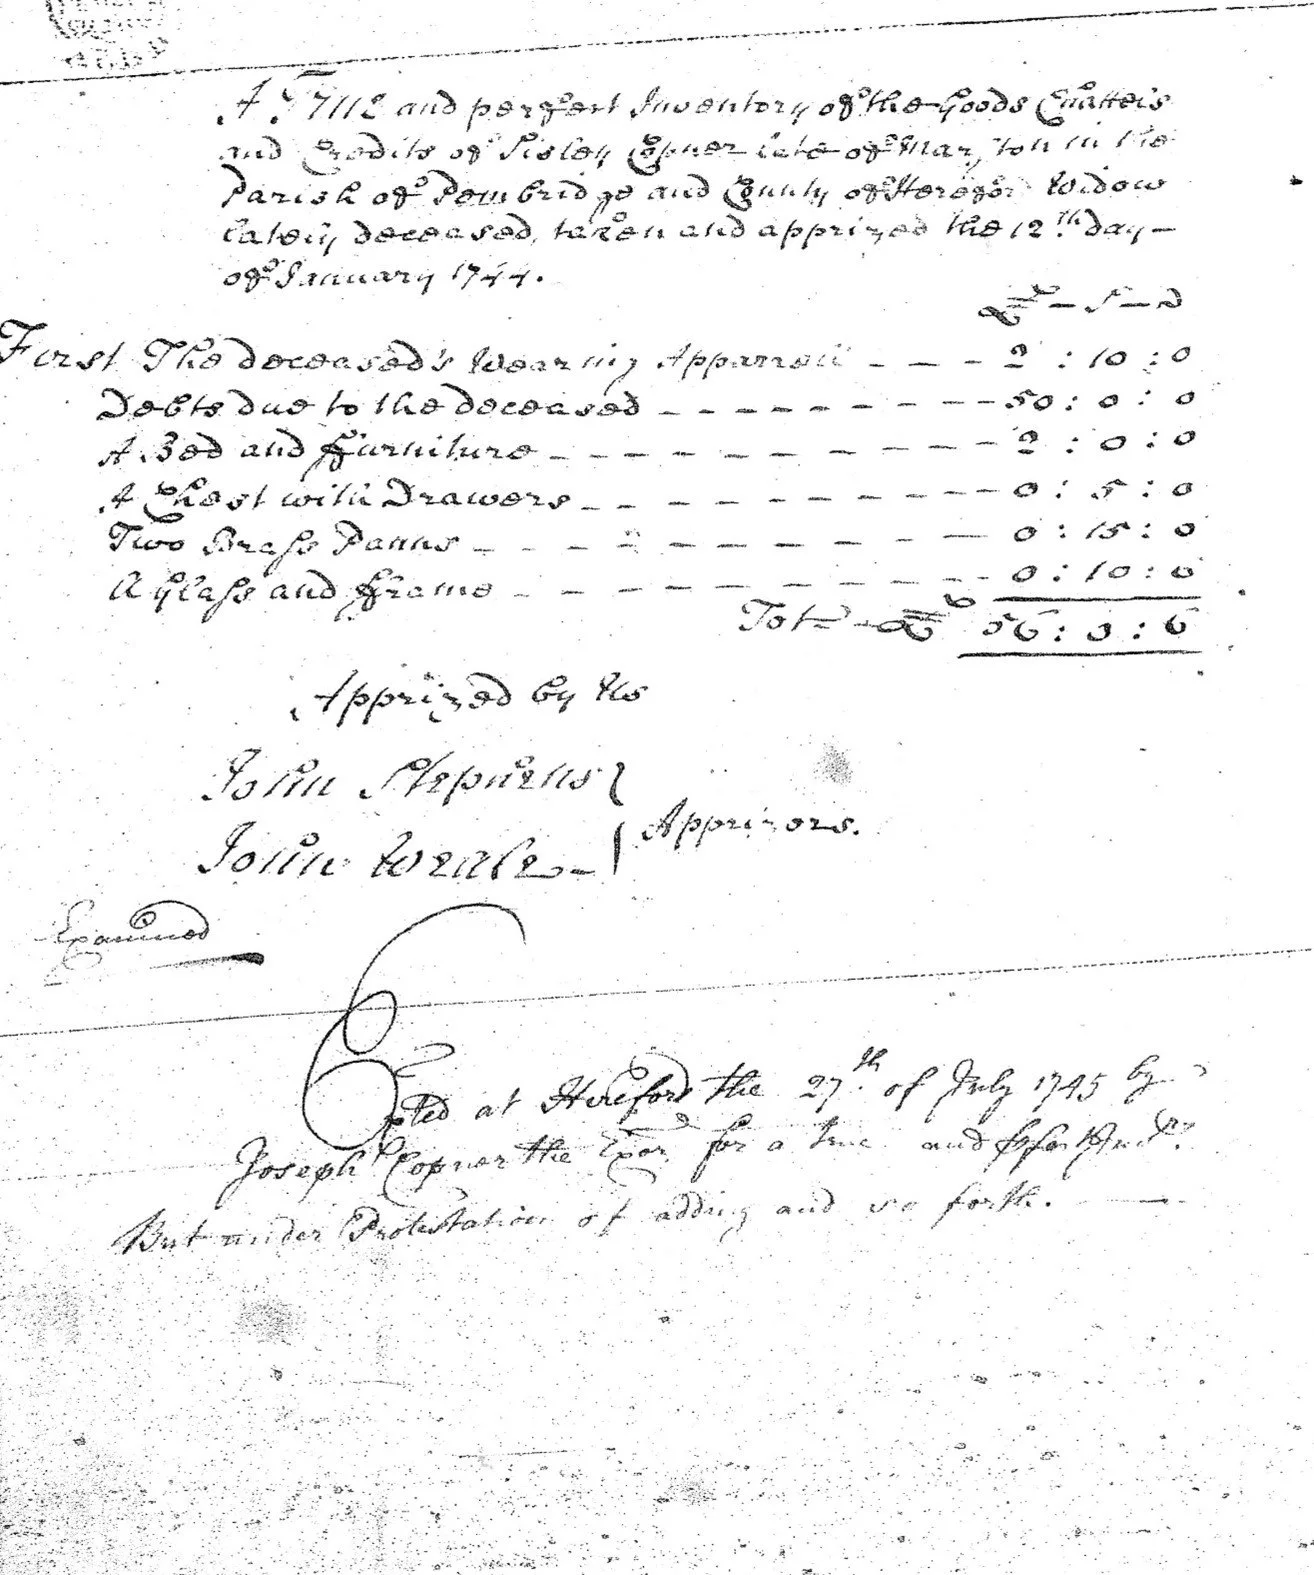 A True and perfect Inventory of the Goods Chattels
and Credits of Sisley Copner late of Marston in the
Parish of Pembridge and County of Hereford Widow
lately deceased, taken and apprized the 12th day —
of January 1744.
£ — s — d
First The deceased's Wearing Apparrell - - - 2 : 10 : 0
Debts due to the deceased - - - - - - - - - 50 : 0 : 0
A Bed and ffurniture - - - - - - - - - - 2 : 0 : 0
A Chest with Drawers - - - - - - - - - 0 : 5 : 0
Two Brass Panns - - - - - - - - - 0 : 15 : 0
A Glass and fframe - - - - - - - - - 0 : 10 : 0
Tot £ 56 : 0 : 0
Apprized by Us
John Stephens
John Weale
Apprizors.
Examined
Exted at Hereford the 27th of July 1745 by
Joseph Copner the Exor for a true and pfect Invry
But under Protestation of adding and so forth. —